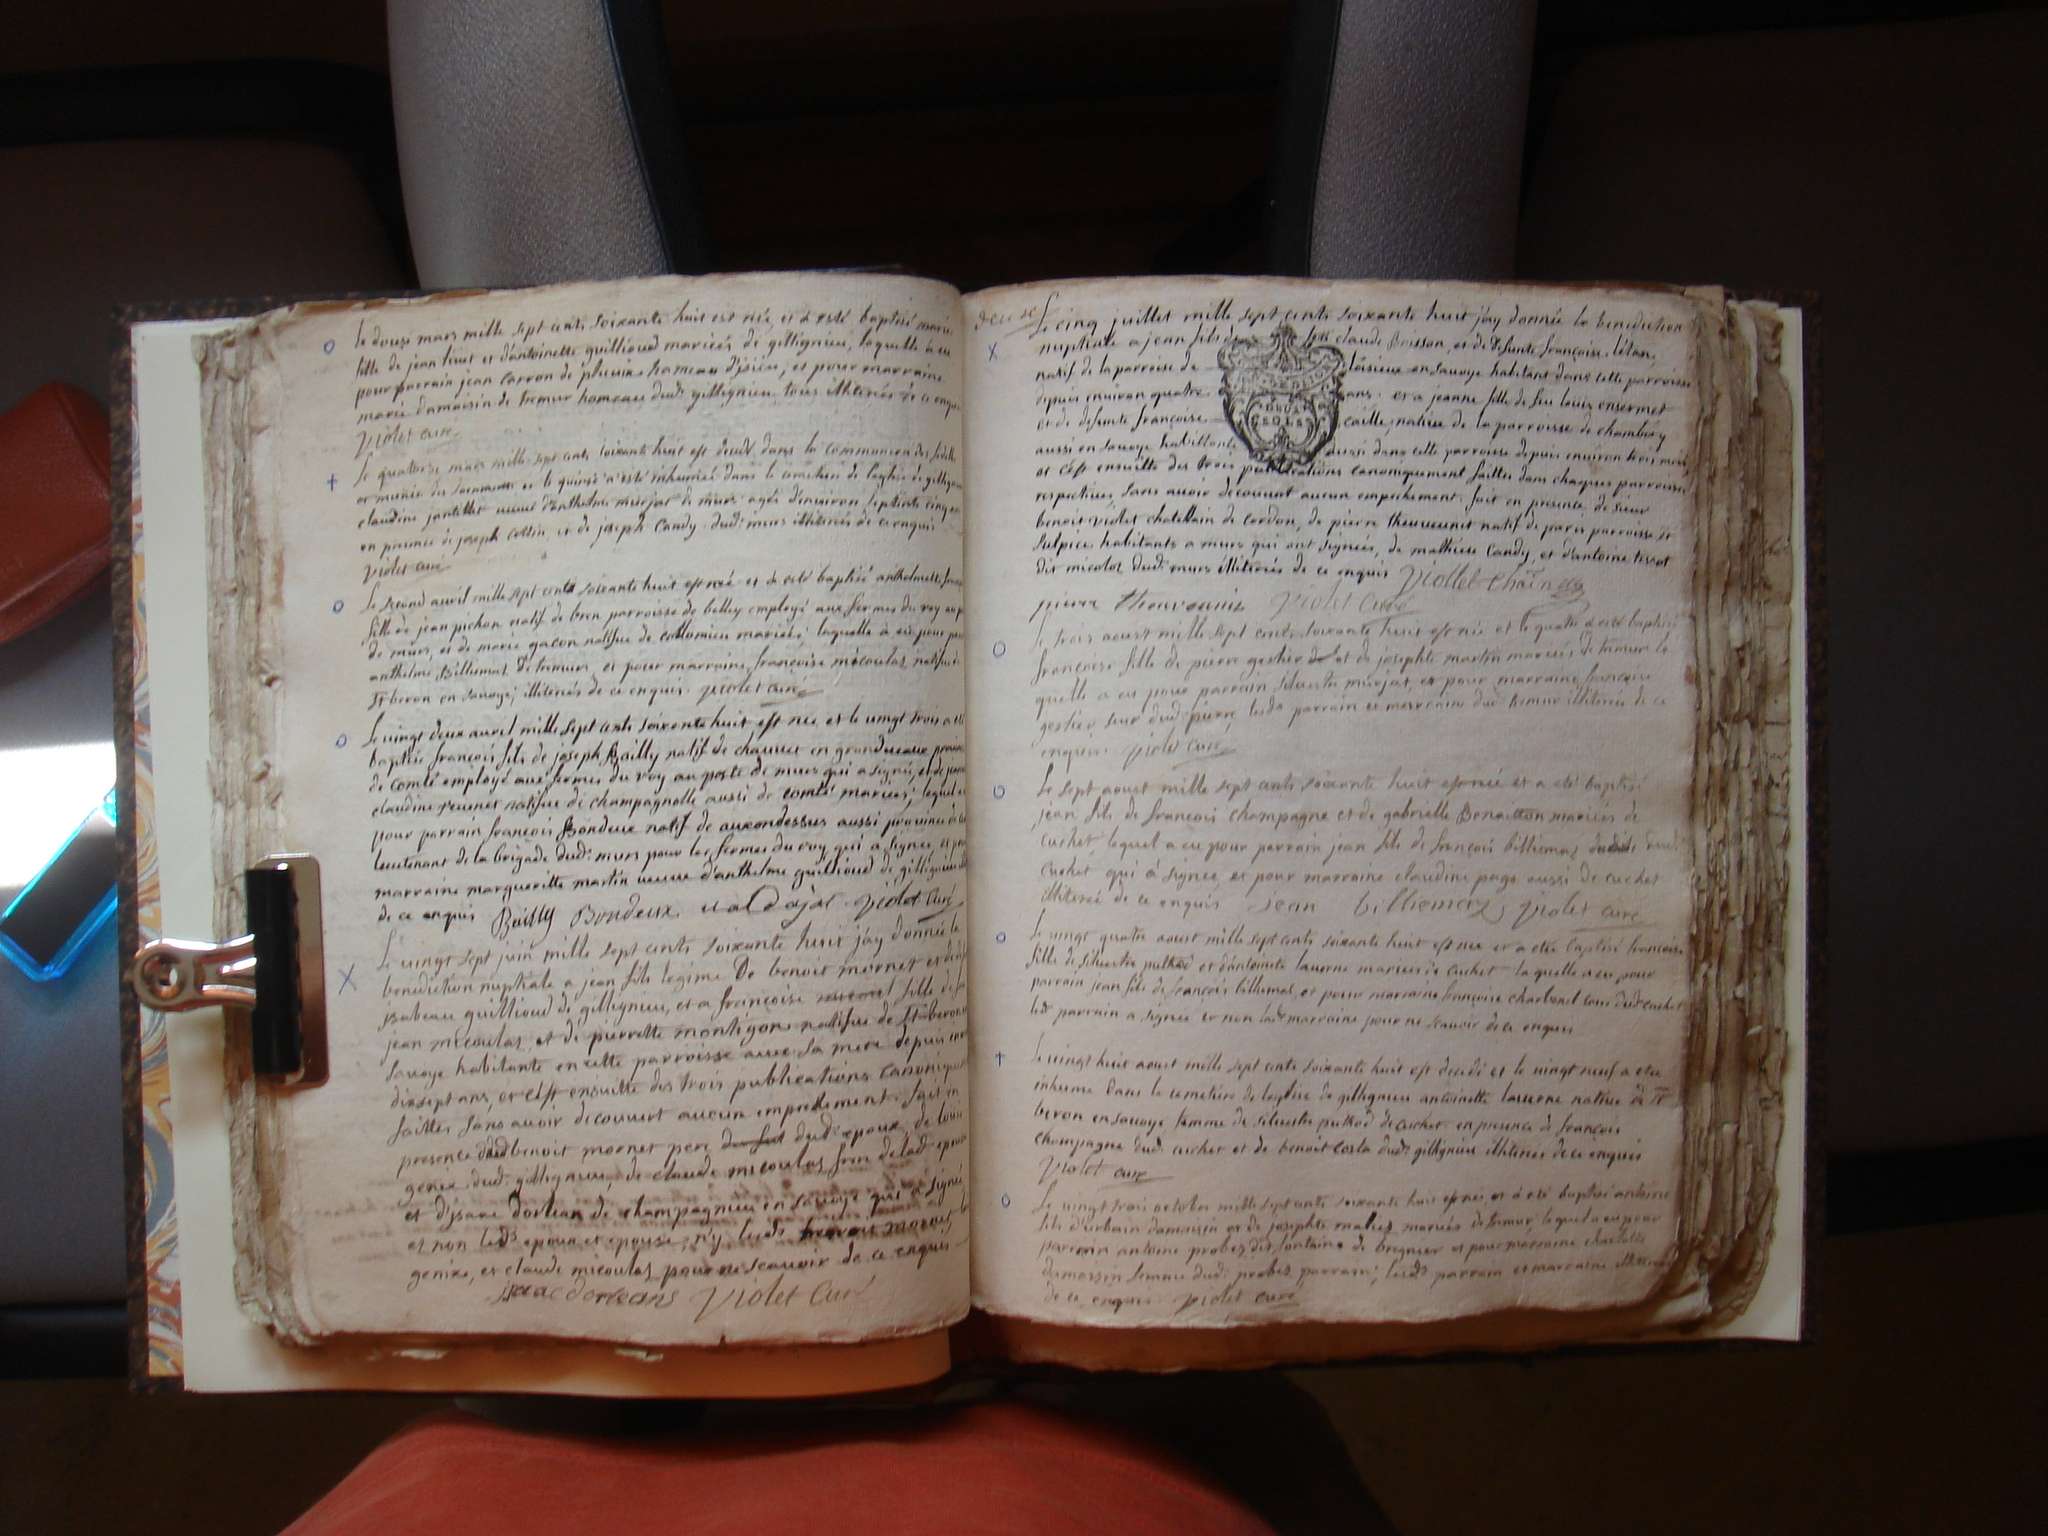 le douze mars mille sept cents soixante huit est née, et a esté baptisé marie
fille de jean huet et d'antoinette guillioud mariés de gillignieu, laquelle à eu
pour parrain jean carron de hameau d'jsieu, et pour marraine
marie damaisin de tremur hameau dud. gillignieu tous illiterés de ce enquis
violet curé
Le quatorze mars mille sept cents soixante huit est decedé dans la des fidelles
et munie des sacrements et le quinze a esté inhumée dans le cimetiere de l'eglise de gillignieu
claudine veuve d'anthelme murjat de murs agée d'environ septante cinq
en presence de joseph et de joseph Candy dud. murs illiterés de ce enquis
violet curé
Le second avril mille sept cents soixante huit est née et a esté baptisé anthelmette
fille de jean pichon natif de bren parroisse de belley employé aux fermes du roy au
de murs, et de marie gacon natifue de collomieu mariés; laquelle à eu pour
anthelme Billiemaz de tremurs, et pour marraine françoise micoulas natifue
St beron en savoye; illiterés de ce enquis. violet curé
Le vingt deux avril mille sept cents soixente huit est née et le vingt trois a
baptisé françois fils de joseph Bailly natif de en grandveaux
de comté employé aux fermes du roy au poste de murs qui a signé, et de
claudine natifue de champagnolle aussi de comté mariés; lequel
pour parrain françois Bondeux natif de aussi province
lieutenant de la brigade dud. murs pour les fermes du roy qui a signée et
marraine margueritte martin veuve d'anthelme guillioud de gillignieu
de ce enquis Bailly Bondeux violet curé
Le vingt sept juin mille sept cents soixante huit jay donnée la
benediction nuptiale a jean fils legime De benoit mornet et
jsabeau guillioud de gillignieu, et a françoise fille de
jean micoulas, et de pierrette montigon natifue de St beron
savoye habitante en cette parroisse avec sa mere depuis
dix sept ans, et c'est ensuitte des trois publications canoniquement
faittes sans avoir decouvert aucun empeschement. fait en
presence dud benoit mornet pere dud. epoux, de
genix dud. gillignieu, de claude micoulas frere de lad. epouse
et d'jsaac dorlean de champagnieu en savoye qui a signé
et non led.s epoux et epouse, n'y led.s mornet,
genix, et claude micoulas pour ne scavoir de ce enquis
isaac dorleans violet Curé
Le cinq juillet mille sept cents soixante huit jay donnée la benediction
nuptiale a jean fils de claude Brisson, et de defunte françoise
natif de la parroisse de loisieux en savoye habitant dans cette parroisse
depuis environ quatre ans. et a jeanne fille de feu louis ensermet
et de defunte françoise caille, natiue de la parroisse de chambéry
aussi en savoye habittante aussi dans cette parroisse depuis environ trois mois
et c'est ensuitte des trois publications canoniquement faittes dans chaques parroisses
respectives, sans avoir decouvert aucun empechement. fait en presence de sieur
benoit violet chatellain de cordon, de pierre natif de paris parroisse St
Sulpice, habitants a murs qui ont signés, de mathieu Candy, et d'antoine tissot
dit micolot dud. murs illiterés de ce enquis Viollet
pierre violet Curé
Le trois aoust mille sept cents soixante huit est née et le quatre a esté baptisé
françoise fille de pierre gestier et de josephte martin mariés de tremur la
quelle a eu pour parrain silvestre murjat, et pour marraine francoise
gestier sœur dud. pierre, lesd.s parrain et marraine dud. tremur illiterés de ce
enquis. violet curé
Le sept aoust mille sept cents soixante huit est née et a eté baptisé
jean fils de françois champagne et de gabrielle Benaitton mariés de
cuchet, lequel a eu pour parrain jean fils de françois billiemaz dud.
cuchet qui à signée, et pour marraine claudine page aussi de cuchet
illiterée de ce enquis jean billiemaz violet curé
Le vingt quatre aoust mille sept cents soixante huit est née et a eté baptisé francoise
fille de silvestre et d'antoinette laverne mariés de cuchet laquelle a eu pour
parrain jean fils de françois billiemaz, et pour marraine françoise charbonel tous dud. cuchet
led. parrain a signée et non lad. marraine pour ne scavoir de ce enquis
Le vingt huit aoust mille sept cents soixante huit est decedé et le vingt neuf a eté
inhumé dans le cemetiere de leglise de gillignieu antoinette laverne native de St
beron en savoye femme de silvestre de cuchet en presence de françois
champagne dud. cuchet et de benoit costa dud. gillignieu illiterés de ce enquis
violet curé
Le vingt trois octobre mille sept cents soixante huit est née, et a eté baptisé antoine
fils d'urbain damaisin et de josephte mariés de tremur, lequel a eu pour
parrain antoine probez dit fontaine de bregnier et pour marraine charlotte
damaisin femme dud. probez parrain; lesd.s parrain et marraine illiterés
de ce enquis violet curé